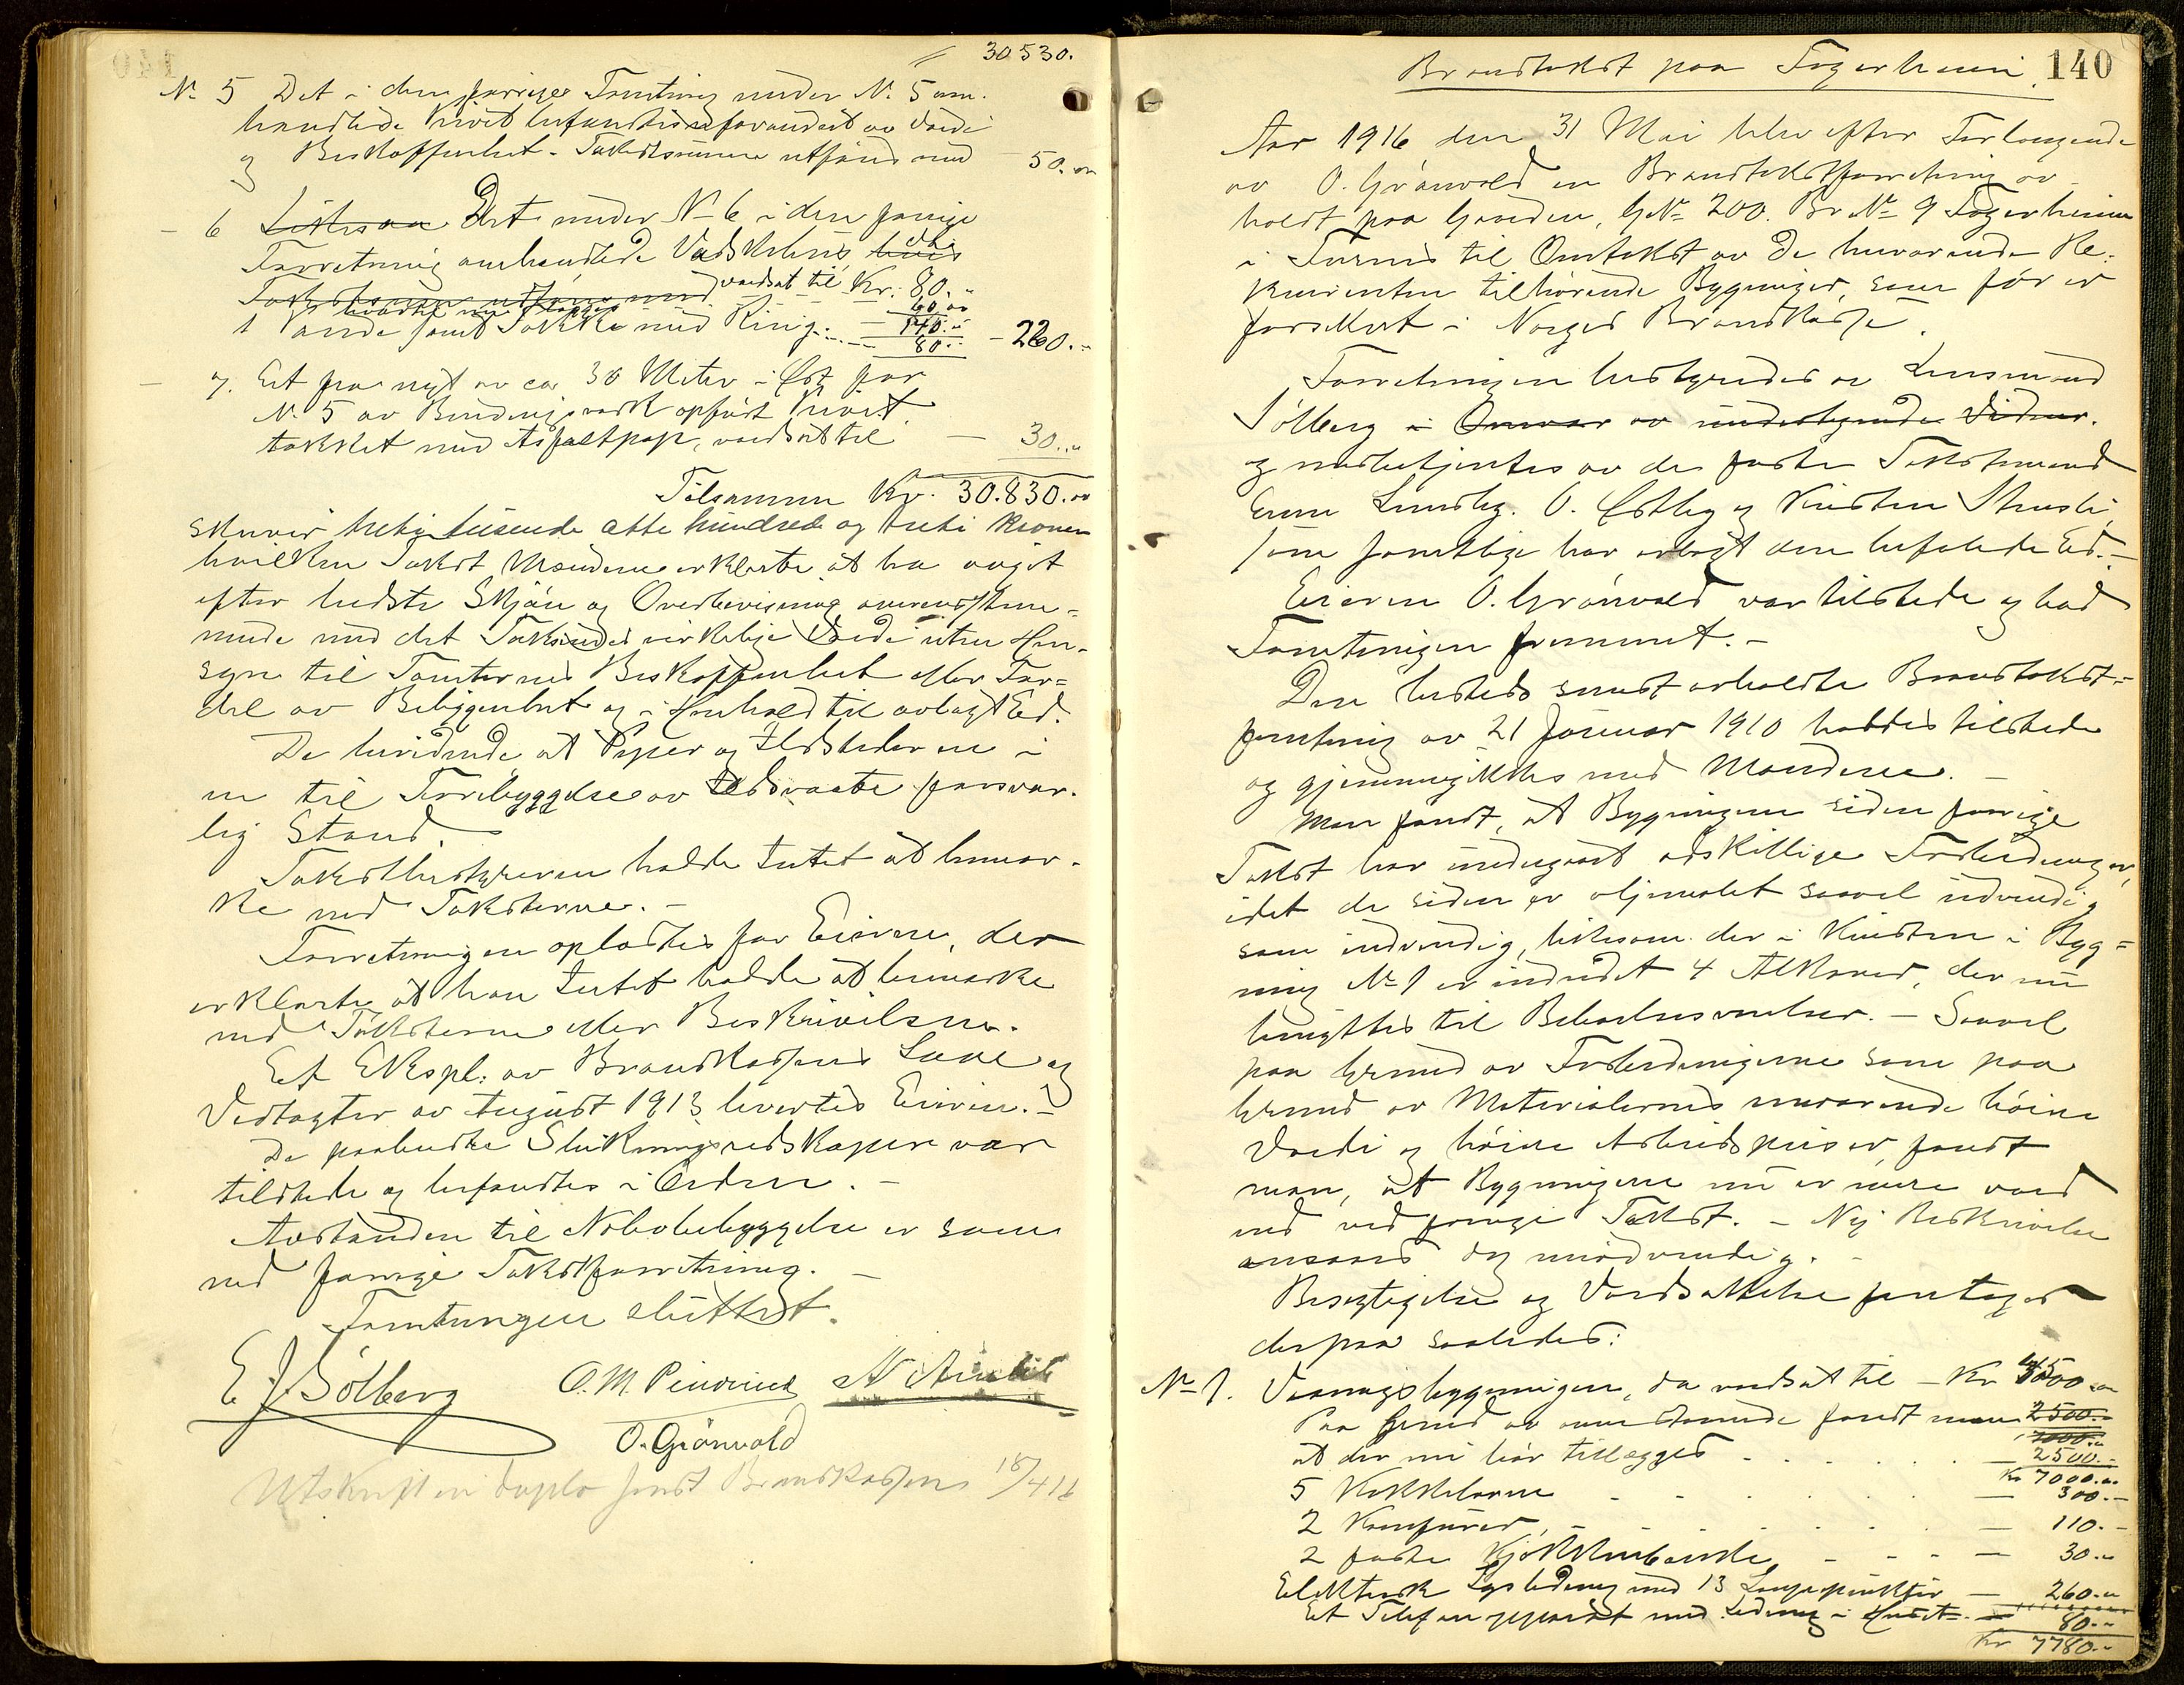 30530.
No 5 Det i den forrige Forretning under No. 5 om-
handlede Privet befandtes uforandret av Værdi
og Beskaffenhet. Takstsummen utføres med 50. oo
- 6 Likesaa Det under No 6 i den forrige
Forretning omhandlede Vedskjul
Takstsummen utføres med værdsat til Kr. 80. "
60 oo
1 samt Takke med Ring - 140. "
80. - - 220. -
- 7. Et fra nyt av ca 30 Meter i Øst for
No 5 av Bindingsverk opført Privet
tækket med Asfaltpap, værdsat til - 30. "
Tilsammen Kr. 30.830. oo
skriver treti tusende otte hundrede og treti Kroner
hvilken Takst Mændene erklærte at ha avgit
efter bedste Skjøn og Overbevisning overensstem-
mende med det Takserte's virkelige Værdi uten Hen-
syn til Tomternes Beskaffenhet eller For=
del av Beliggenhet og i Henhold til avlagt Ed.
De bevidnede at Piper og Ildsteder er i
en til Forebyggelse av Ildsvaate forsvar-
lig Stand.
Takstbestyreren hadde Intet at bemær-
ke ved Taksterne. -
Forretningen oplæstes for Eieren, der
erklærte, at han Intet hadde at bemærke
ved Taksterne eller Beskrivelsen.
Et Ekspl. av Brandkassens Love og
Vedtægter av August 1913 levertes Eieren. -
De paabudte Slukningsredskaper var
tilstede og befandtes i Orden. -
Avstanden til Nabobebyggelse er som
ved forrige Takstforretning. -
Forretningen sluttet.
E. J. Sölberg O. M.
O. Grönvold
Utskrift in duplo sendt Brandkassen 18/4 16
Brandtakst paa Fagerheim. 140
Aar 1916 den 31 Mai blev efter Forlangende
av O. Grönvold en Brandtakstforretning av-
holdt paa Gaarden, GNo 200. BrNo 9 Fagerheim
i Furnes til Omtakst av de herværende Re-
kvirenten tilhørende Bygninger, som før er
forsikret i Norges Brandkasse.
Forretningen bestyredes av Lensmand
Sölberg i Onvar av undertegnede Vidner.
og medbetjentes av de faste Takstmænd
Lundby. O. Østby og Kristen
som samtlige har avlagt den befalede Ed. -
Eieren O. Grönvold var tilstede og bad
Forretningen fremmet. -
Den herstede senest avholdte Brandtakst-
forretning av 21 Januar 1910 haddes tilstede
og gjennemgikkes med Mændene. -
Man fandt, at Bygningene siden forrige
Takst har undergaat adskillige Forbedringer,
idet de siden er oljemalet saavel utvendig
som indvendig, likesom der i Kvisten i Byg=
ning No 1 er indredet 4 Alkover, der nu
benyttes til Beboelsesværelser. - Saavel
paa Grund av Forbedringerne som paa
Grund av Materialernes nuværende høiere
Værdi og høiere Arbeidspriser, fandt
man, at Bygningerne nu er mere værd
end ved forrige Takst. - Ny Beskrivelse
ansaaes dog unødvendig. -
Besigtigelse og Værdsættelse foretoges
derpaa saaledes:
No 1. Vaaningsbygningen, da værdsat til - Kr 4500 oo
Paa Grund av ovenstaaende fandt man 2500. -
at der nu bør tillægges . . . . . . - 2500. -
Kr 7000. oo
5 Kakkelovne - - - - - 300. -
2 Komfurer, - - - - - - 110. -
2 faste Kjøkkenbænke - - - - 30. "
Elektrisk Lysledning med 13 Lampepunkter - 260. "
Et Telefonapparat med Ledning i Huset - 80. -
Kr 7780. -